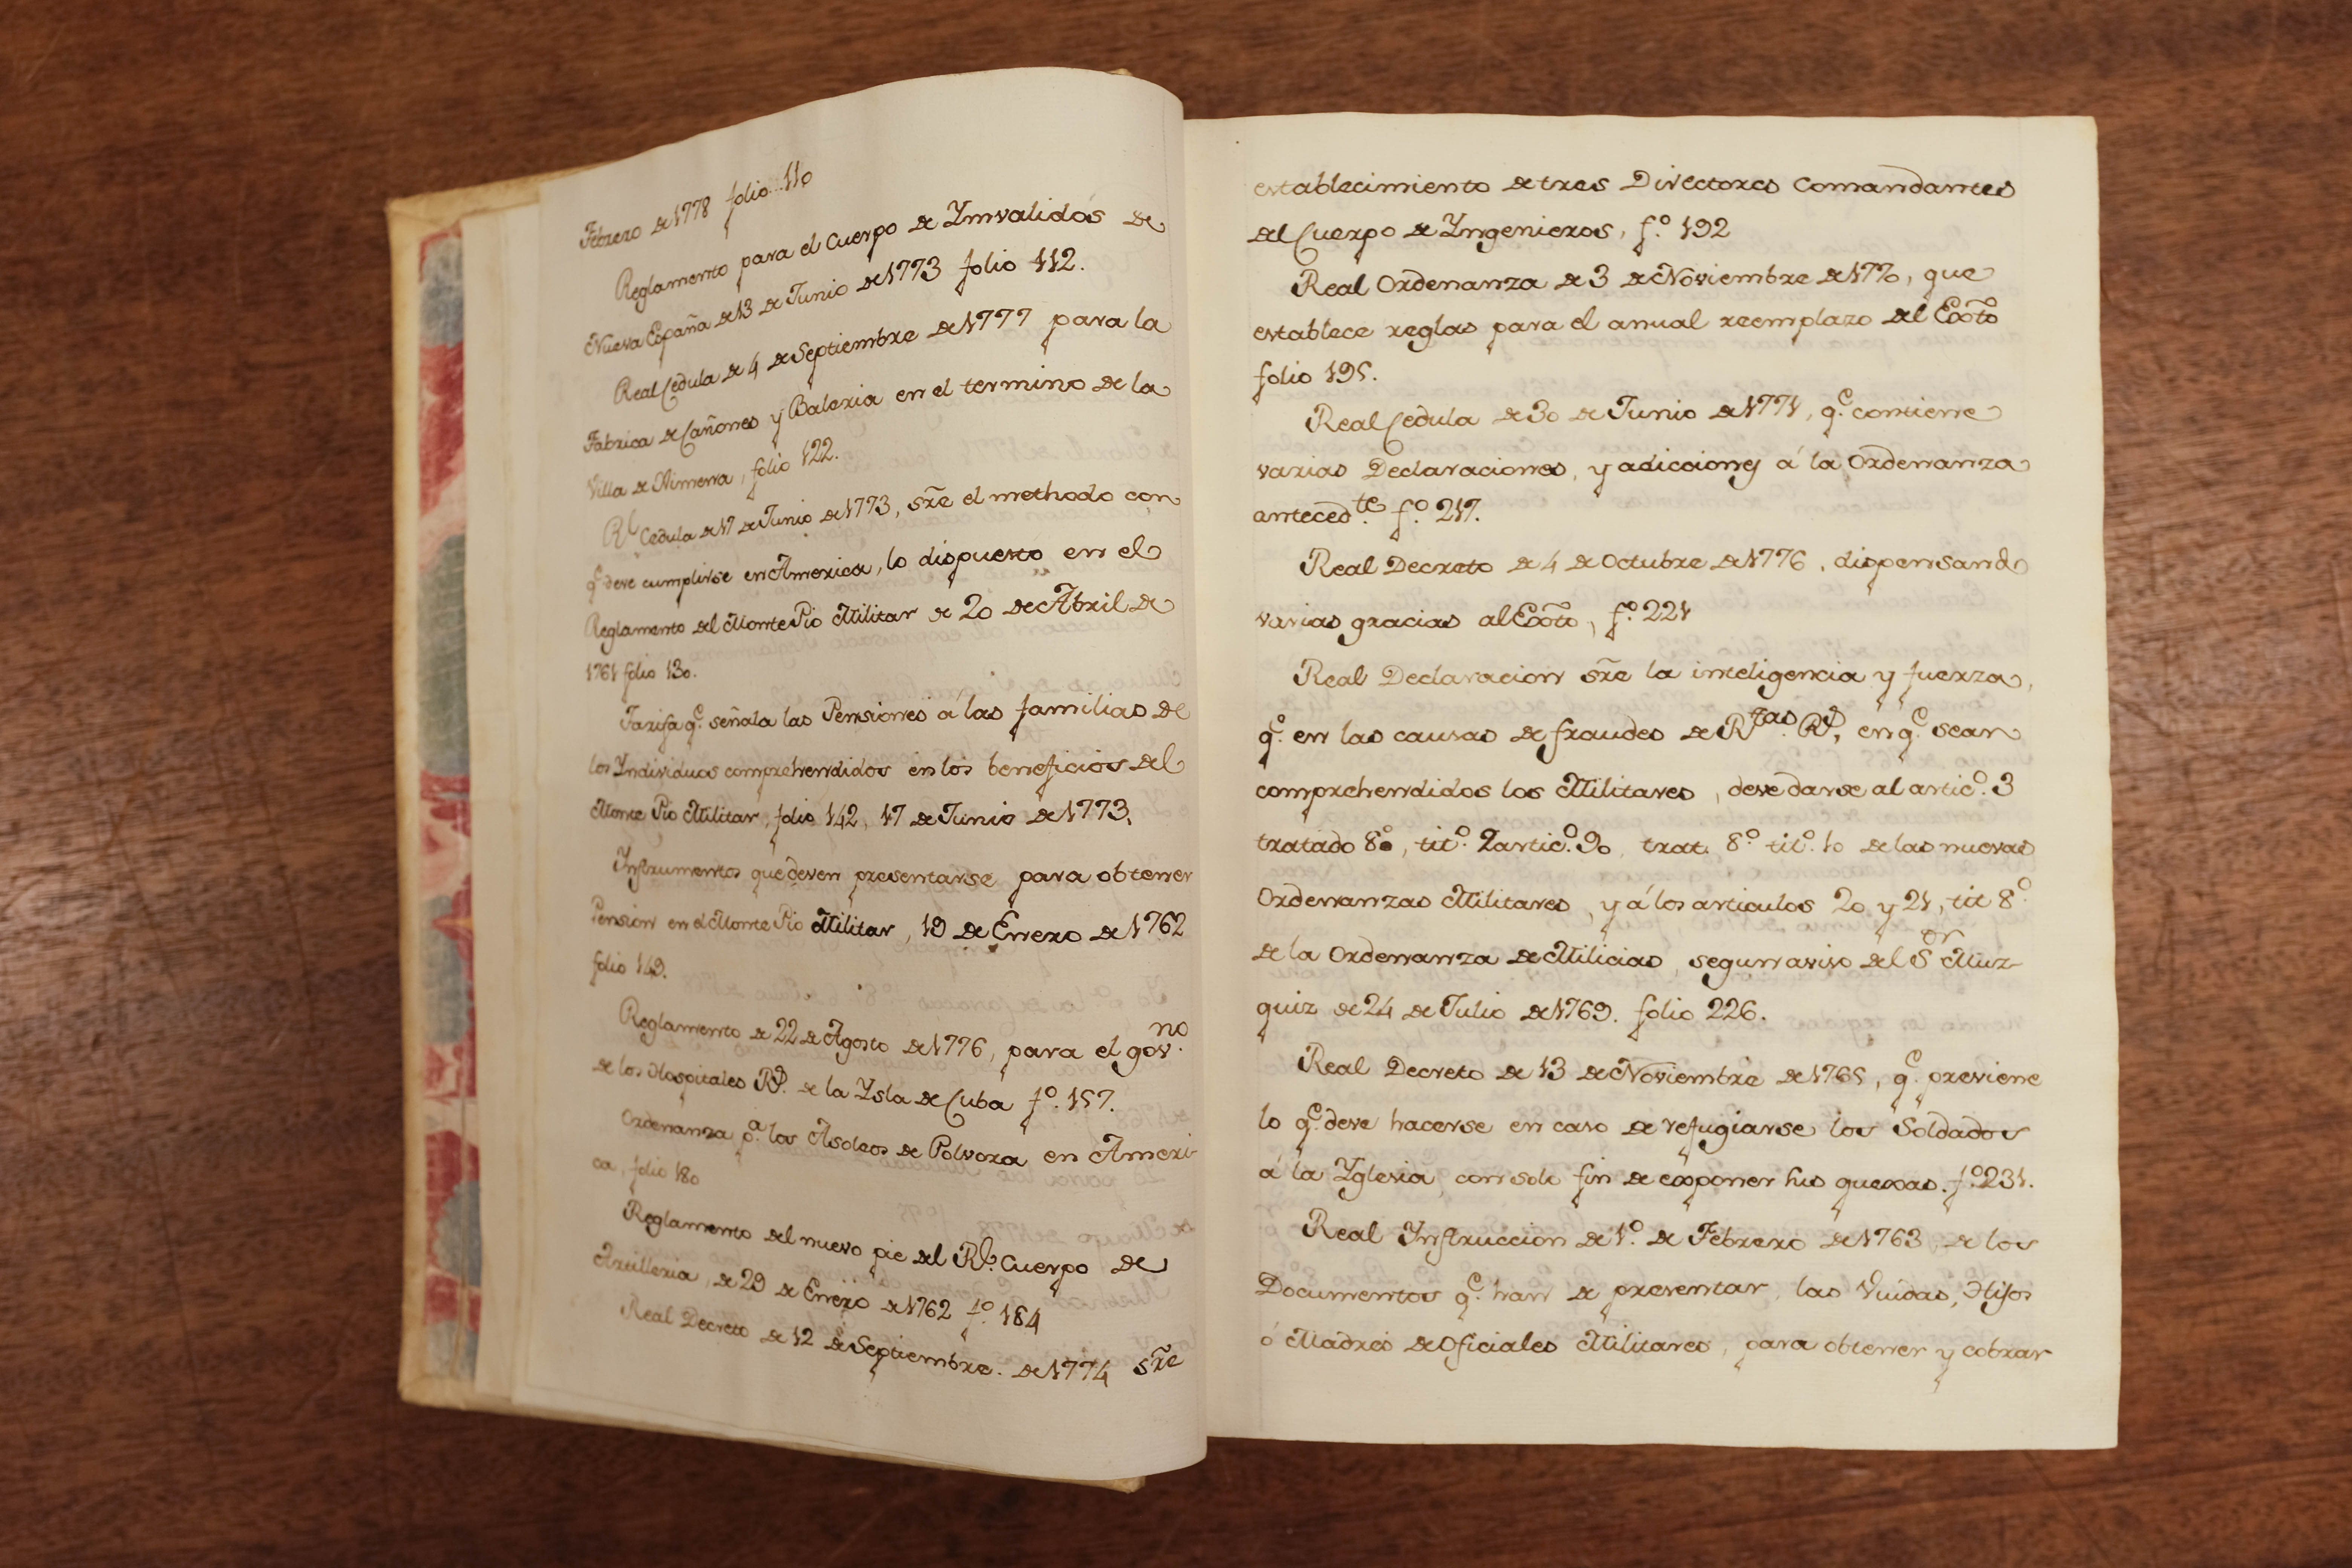 Febrero de 1778 folio 110
Reglamento para el Cuerpo de Ymvalidos de
Nueva España de 13 de Junio de 1773 folio 112.
Real Cedula de 4 de Septiembre de 1777 para la
Fabrica de Cañones y Baleria en el termino de la
Villa de Ximena, folio 122.
Rl Cedula de 17 de Junio de 1773, sr̃e el methodo con
q.e deve cumplirse en America, lo dispuesto en el
Reglamento del Monte Pio Militar de 20 de Abril de
1761 folio 130.
Tarifa q.e señala las Pensiones á las familias de
los Yndividuos comprehendidos en los beneficios del
Monte Pio Militar, folio 142, 17 de Junio de 1773.
Ynstrumentos que deven presentarse para obtener
Pension en el Monte Pio Militar, 19 de Enero de 1762
folio 149.
Reglamento de 22 de Agosto de 1776, para el gov.no
de los Hospitales R.s de la Ysla de Cuba f.o 157.
Ordenanza p.a los Asoleos de Polvora en Ameri-
ca, folio 180
Reglamento del nuevo pie del Rl. Cuerpo de
Artilleria, de 29 de Enero de 1762 f.o 184
Real Decreto de 12 de Septiembre. de 1774 sr̃e
establecimiento de tres Directores Comandantes
del Cuerpo de Yngenieros, f.o 192
Real Ordenanza de 3 de Noviembre de 1770, que
establece reglas para el anual reemplazo del Exto
folio 195.
Real Cedula de 30 de Junio de 1771, q.e contiene
varias Declaraciones, y adicciones á la Ordenanza
anteced.te f.o 217.
Real Decreto de 4 de Octubre de 1776, dispensando
varias gracias al Exto, f.o 221
Real Declaracion sr̃e la inteligencia y fuerza,
q.e en las causas de fraudes de R.tas R.s, en q.e sean
comprehendidos los Militares, deve darse al artic.o 3
tratado 8o, tit.o 2 artic.o 90, trat. 8.o tit.o 10 de las nuevas
Ordenanzas Militares, y á los articulos 20 y 21, tit 8.o
de la Ordenanza de Milicias, segun aviso del S.or Muz-
quiz de 24 de Julio de 1769. folio 226.
Real Decreto de 13 de Noviembre de 1765, q.e previene
lo q.e deve hacerse en caso de refugiarse los Soldados
á la Yglesia, con solo fin de exponer sus quexas. f.o 231.
Real Ynstruccion de 1.o de Febrero de 1763, de los
Documentos q.e han de presentar, las Viudas, Hijos
ó Madres de Oficiales Militares, para obtener y cobrar